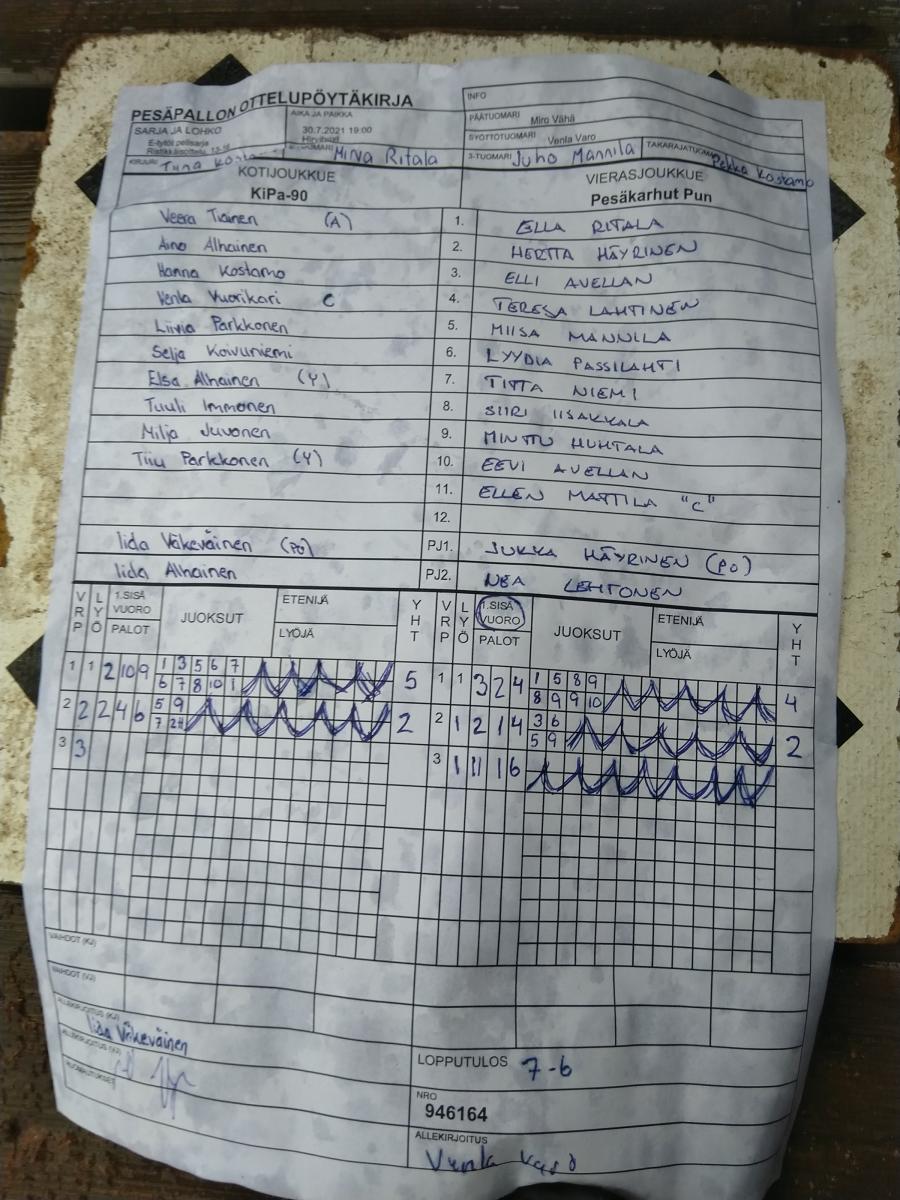 PESÄPALLON OTTELUPÖYTÄKIRJA
INFO
SARJA JA LOHKO
E-tytöt pelisarja
AIKA JA PAIKKA
30.7.2021 19:00
PÄÄTUOMARI Miro Vähä
SYÖTTÖTUOMARI Venla Varo
KIRJURI Tiina
Mirva Ritala
3-TUOMARI Juho Mannila
TAKARAJATUOMARI Pekka Kostamo
KOTIJOUKKUE
KiPa-90
VIERASJOUKKUE
Pesäkarhut Pun
Veera Tiainen (A) 1. ELLA RITALA
Aino Alhainen 2. HERTTA HÄYRINEN
Hanna Kostamo 3. ELLI AVELLAN
Venla Vuorikari C 4. TERESA LAHTINEN
Liivia Parkkonen 5. MIISA MANNILA
Selja Koivuniemi 6. LYYDIA PASSILAHTI
Elsa Alhainen (Y) 7. TITTA NIEMI
Tuuli Immonen 8. SIIRI IISAKKALA
Milja Juvonen 9. MINTTU HUHTALA
Tiiu Parkkonen (Y) 10. EEVI AVELLAN
11. ELLEN MATTILA "C"
12.
Iida Väkeväinen (PO) PJ1. JUKKA HÄYRINEN (PO)
Iida Alhainen PJ2. NEA LEHTONEN
VRP LYÖ 1.SISÄ VUORO PALOT JUOKSUT ETENIJÄ LYÖJÄ YHT VRP LYÖ 1.SISÄ VUORO PALOT JUOKSUT ETENIJÄ LYÖJÄ YHT
1 1 2 10 9 1 3 5 6 7 5 1 1 3 2 4 1 5 8 9 4
6 7 8 10 1 8 9 9 10
2 2 2 4 6 5 9 2 2 1 2 1 4 3 6 2
7 5 9
3 3 3 1 11 1 6
VAIHDOT (KJ)
VAIHDOT (VJ)
ALLEKIRJOITUS (KJ)
Iida Väkeväinen
ALLEKIRJOITUS (VJ)
HUOMAUTUKSET
LOPPUTULOS 7-6
NRO
946164
ALLEKIRJOITUS